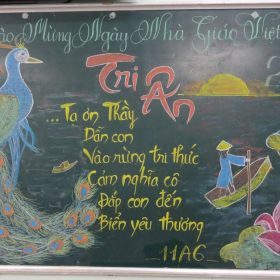 Mừng Ngày Nhà Giáo Việt
Tri
Ân
... Tạ ơn Thầy
Dẫn con
Vào rừng tri thức
Cảm nghĩa cô
Đắp con đến
Biển yêu thương
11A6